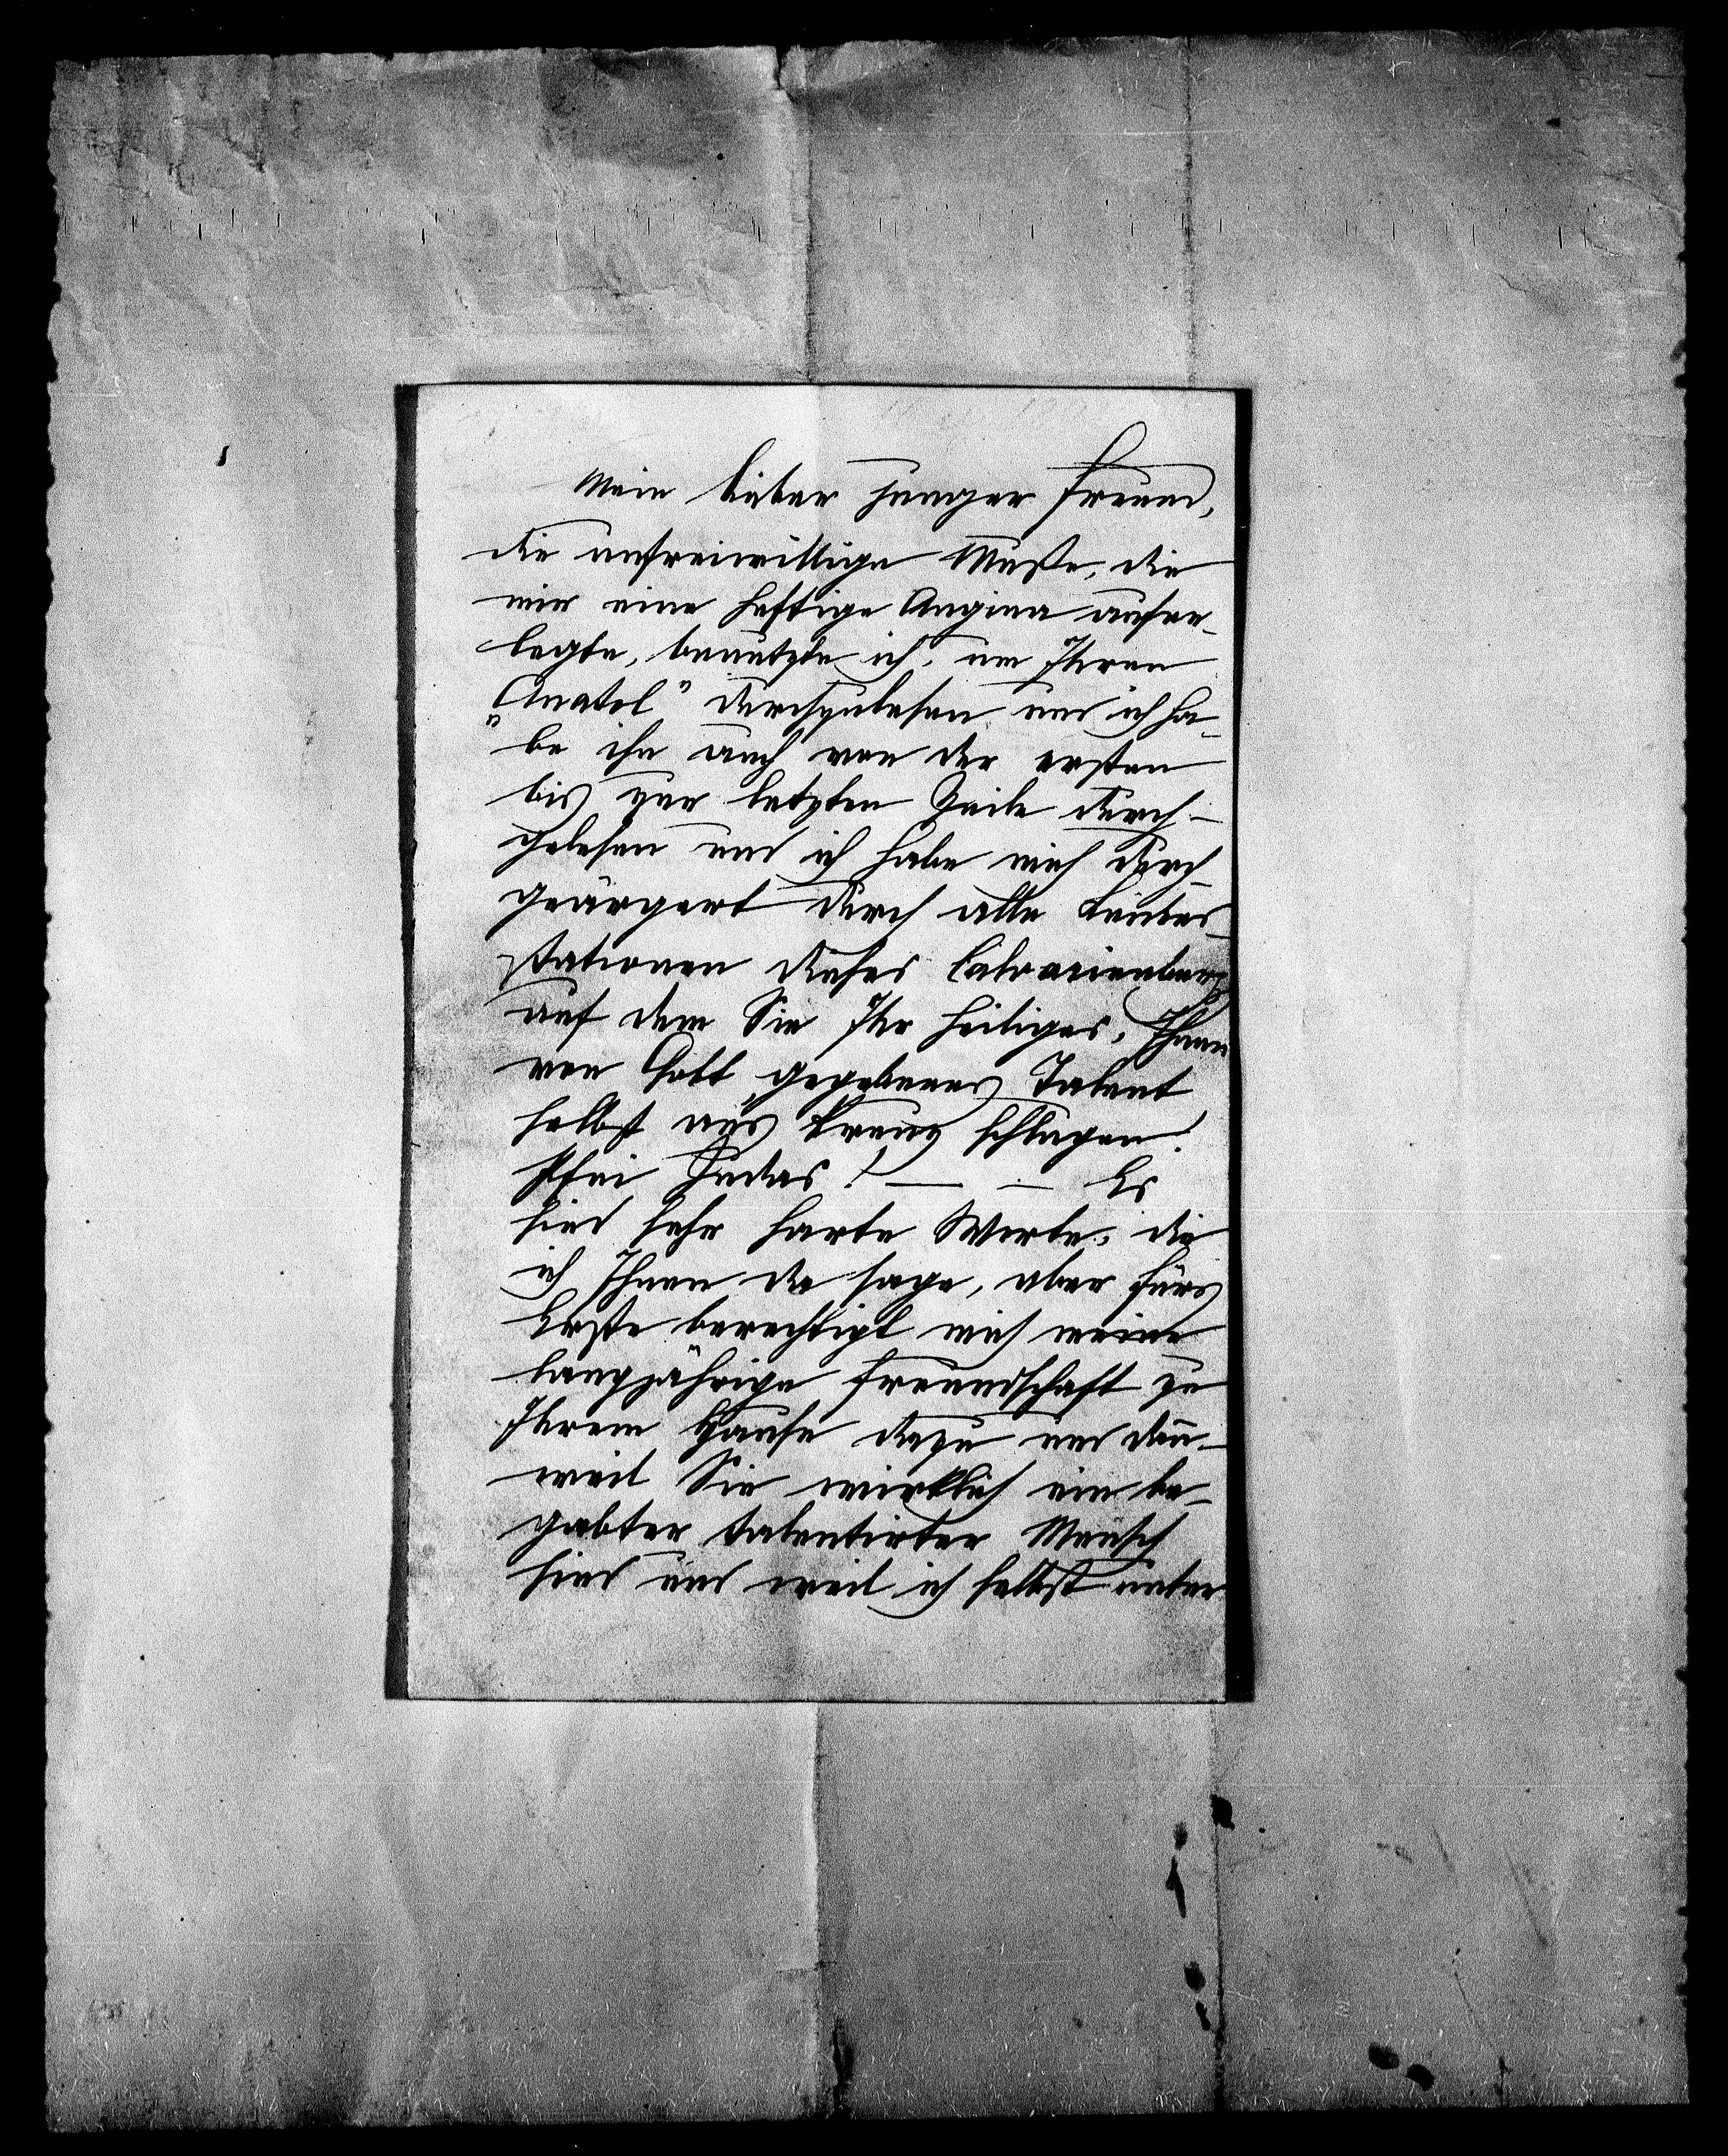 Mein lieber junger Freund,
die unfreiwillige Muße, die
mir eine heftige Angina aufer-
legte, benützte ich, um Ihren
„Anatol" durchzulesen und ich ha-
be ihn auch von der ersten
bis zur letzten Zeile durch-
gelesen und ich habe mich durch-
geärgert durch alle Leidens-
stationen dieses Calvarienberg
auf dem Sie Ihr heiliges, Ihnen
von Gott gegebenes Talent
selbst ans Kreuz schlagen!
Pfui Judas! — — Es
sind sehr harte Worte, die
ich Ihnen da sage, aber fürs
Erste berechtigt mich meine
langjährige Freundschaft zu
Ihrem Hause dazu und dan̄-
weil Sie wirklich ein be-
gabter talentirter Mensch
sind und weil ich selbst unter